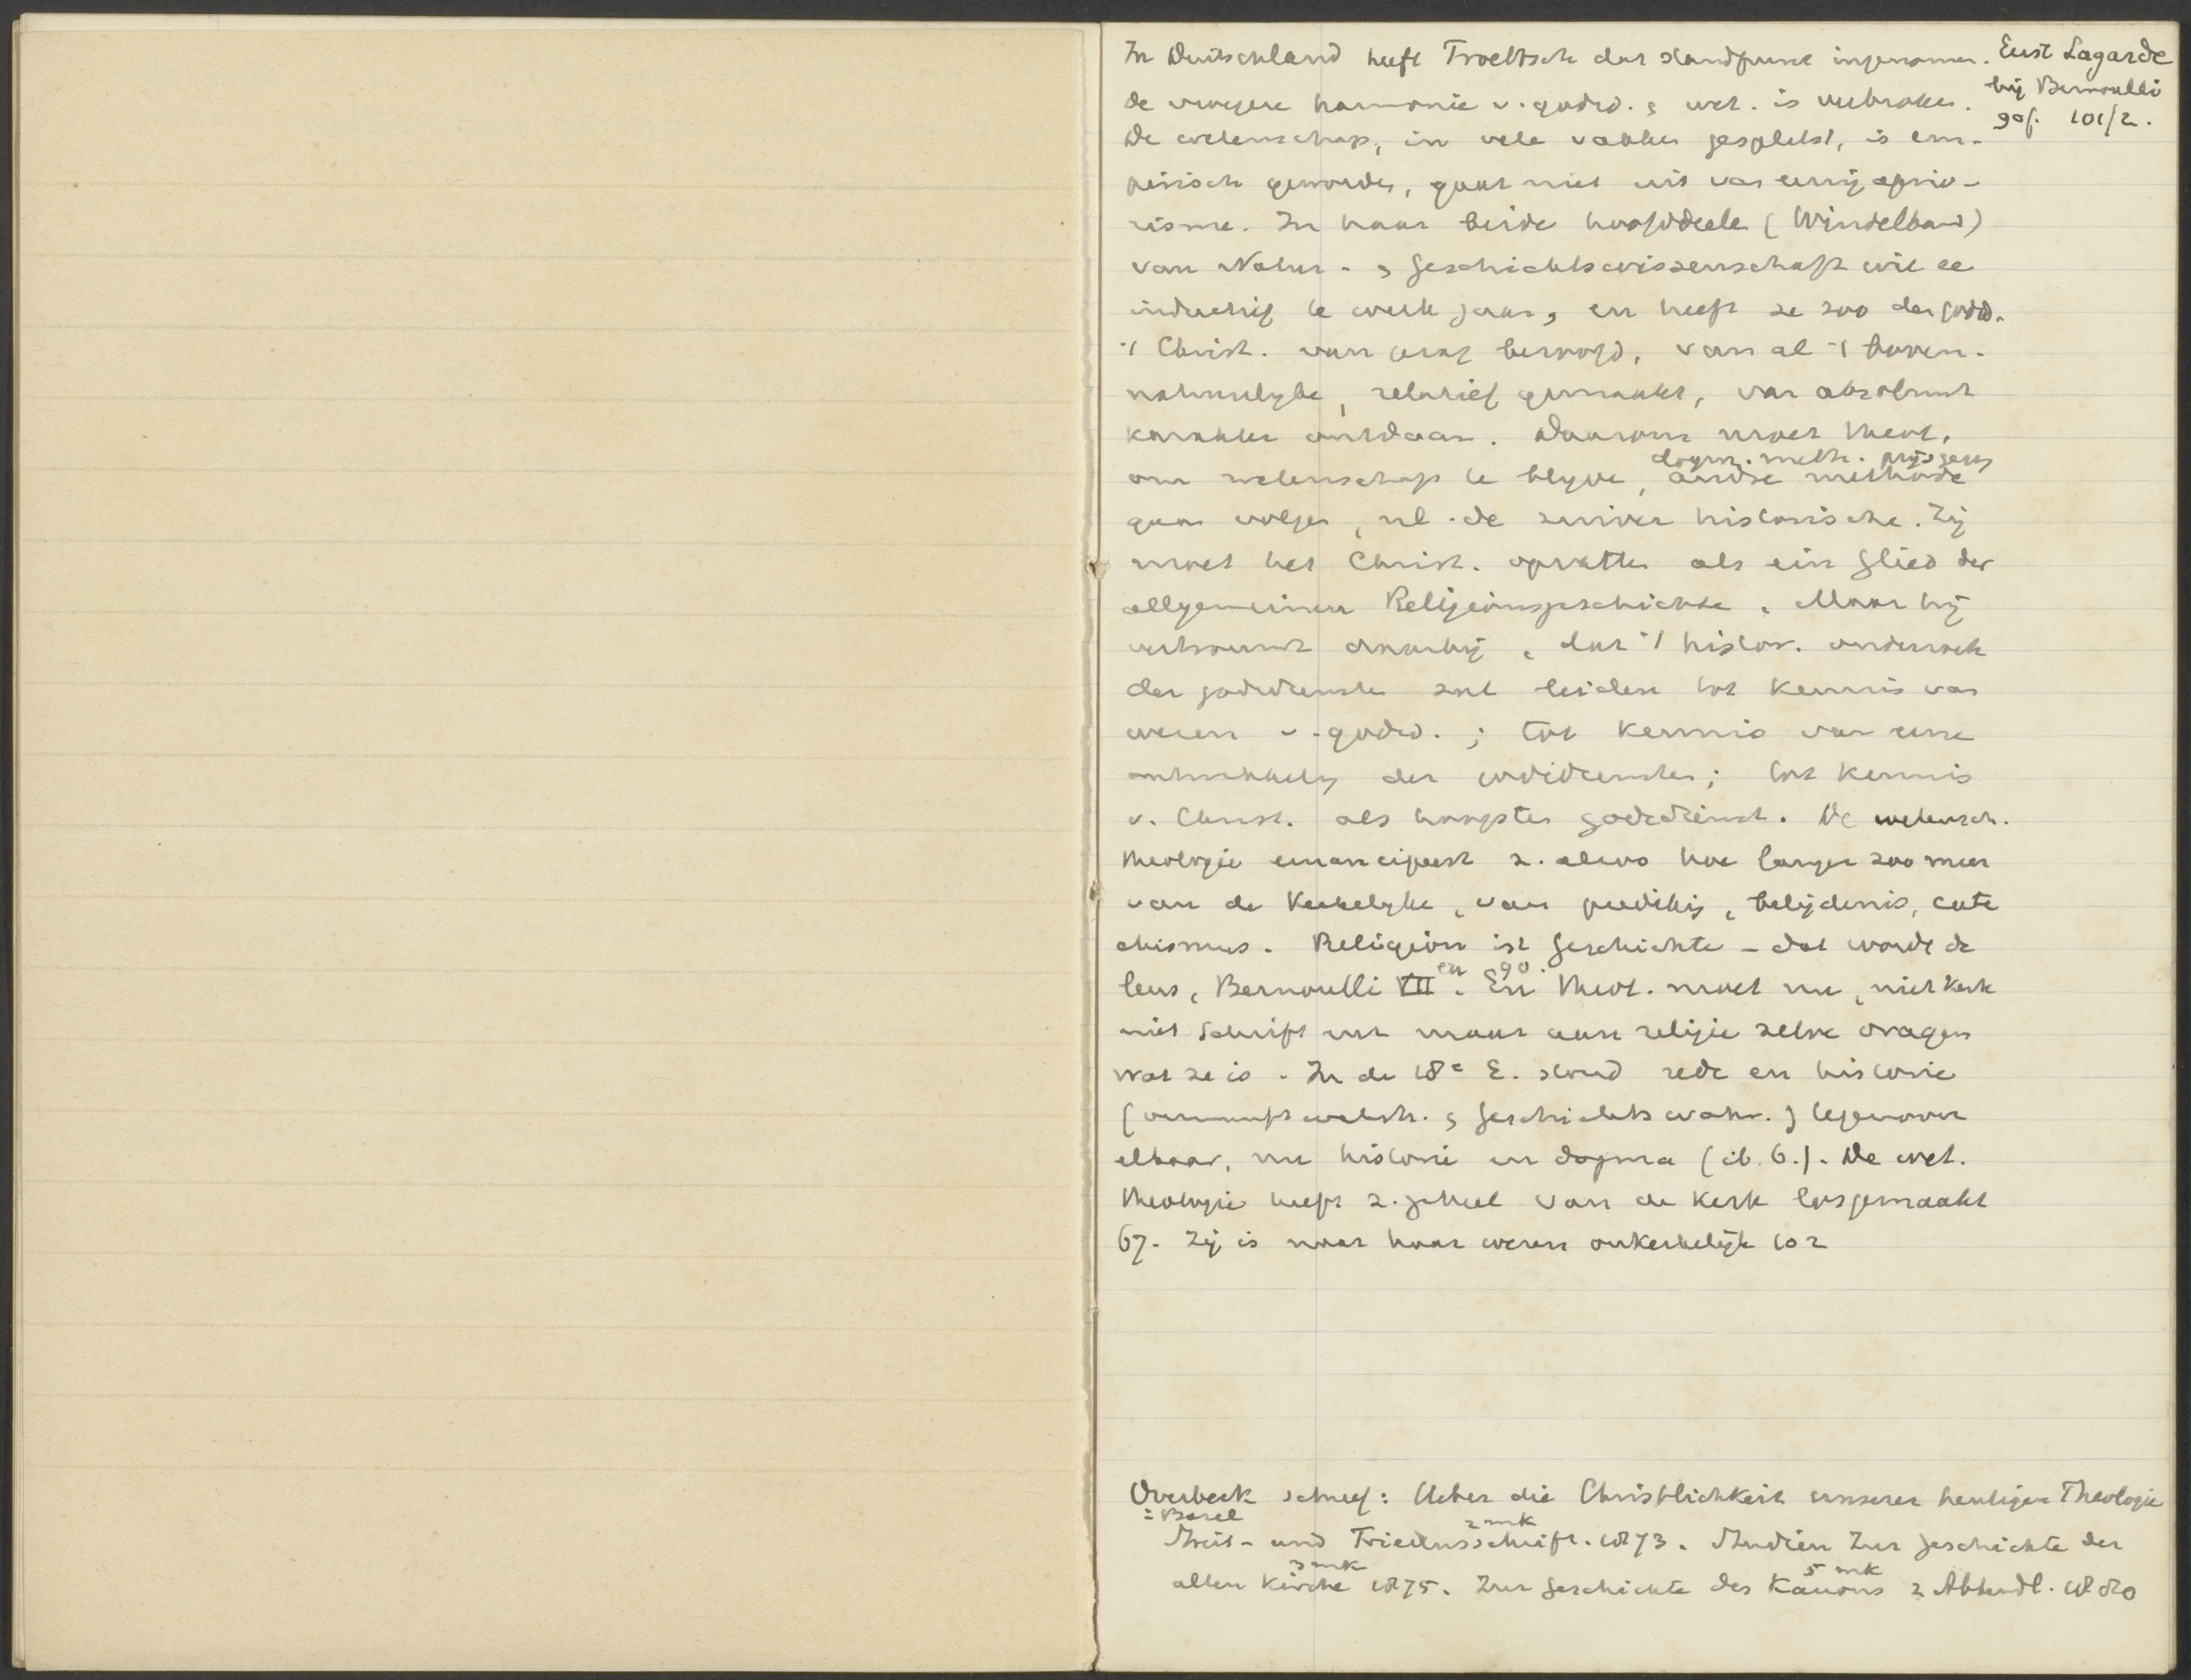 In Deutschland heeft Troeltsch dat standpunt ingenomen.
Eerst Lagarde
bij Bernoulli
90f. 101/2.
de vroegere harmonie v. godsd. & wet. is verbroken.
De wetenschap, in vele vakken gesplitst, is em-
pirisch geworden, gaat niet uit van eenig aprio-
risme. In haar beide hoofddeelen (Windelband)
van Natur- & Geschichtswissenschaft wil ze
inductief te werk gaan, en heeft ze zoo den godsd.
't Christ. van beroofd, van al 't boven-
natuurlijke, relatief gemaakt, van absoluut
karakter ontdaan. Daarom moet theol.,
dogm. meth. prijsgeven
om wetenschap te blijven, andre methode
gaan volgen, nl. de zuiver historische. Zij
moet het Christ. opvatten als ein Glied der
allgemeinen Religionsgeschichte. Maar hij
vertrouwt daarbij, dat 't histor. onderzoek
der godsdiensten zal leiden tot kennis van
wezen v. godsd.; tot kennis van eene
ontwikkeling der godsdiensten; tot kennis
v. Christ. als hoogsten godsdienst. De wetensch.
theologie emancipeert z. alzoo hoe langer zoo meer
van de kerkelijke, van prediking, belijdenis, cate
chismus. Religion ist Geschichte - dat wordt de
leus, Bernoulli VII en 90. En theol. moet nu, niet kerk
niet Schrift enz maar aan religie zelve vragen
wat ze is. In de 18e E. stond rede en historie
(vernunftwahrh. & Geschichtswahr.) tegenover
elkaar, nu historie en dogma (ib. 6.). De wet.
theologie heeft z. geheel van de kerk losgemaakt
67. Zij is naar haar wezen onkerkelijk 102
Overbeck schreef: Ueber die Christlichkeit unserer heutigen Theologie
= Basel
Streit- und Friedensschrift. 1873. 2 mk Studien zur Geschichte der
alten Kirche 1875. 3 mk Zur Geschichte des Kanons 5 mk 2 Abhandl. 1880